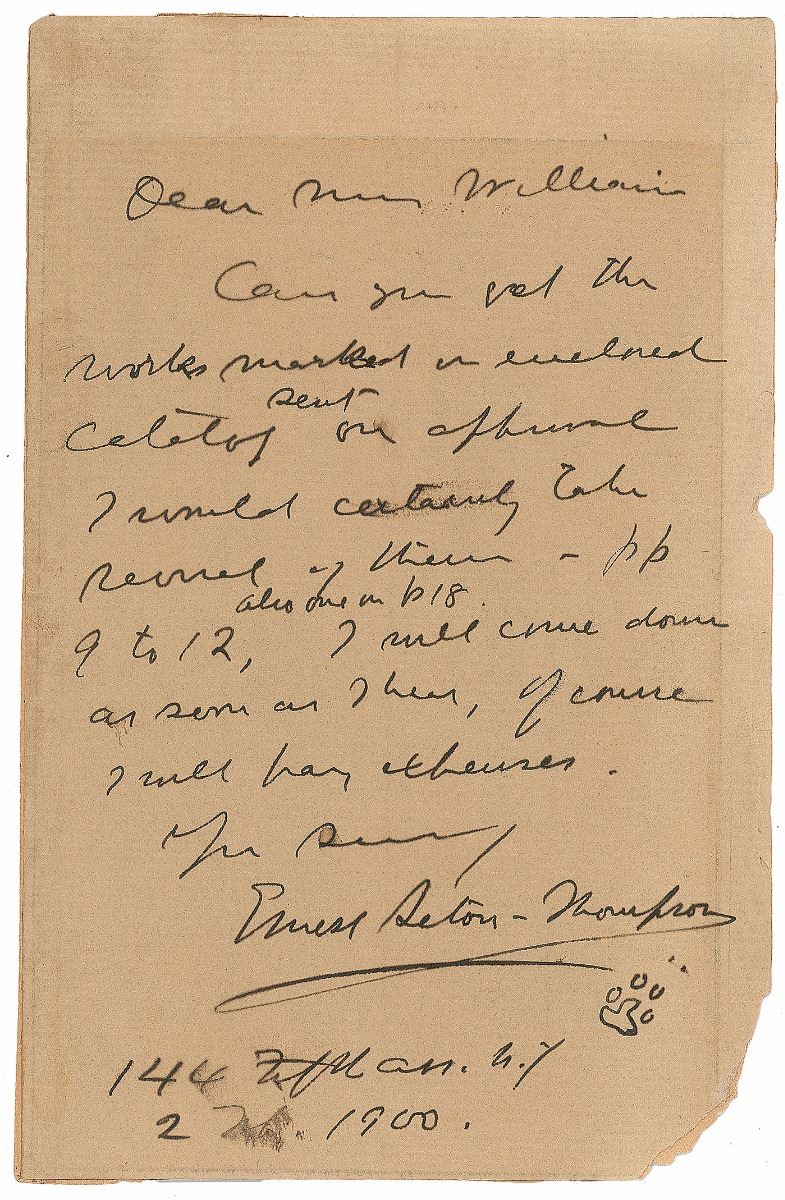 Dear Miss William
Can you get the
works marked in enclosed
sent
Catalog on approval
I would certainly take
several of them - pp
also one on p18.
9 to 12, I will come down
as soon as I hear, Of course
I will pay expenses.
Yrs
Ernest Seton-Thompson
144 Fifth Av. N.Y
2 1900.